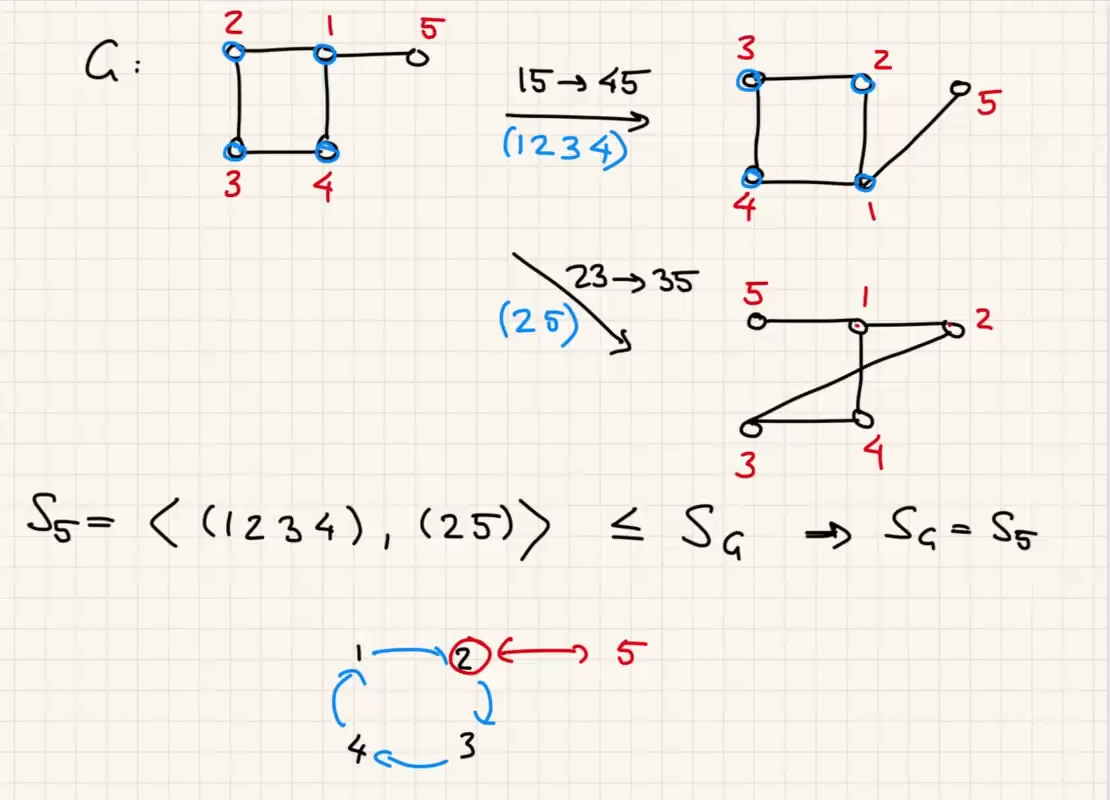 G:
2 1 5
3 4
15→45
(1234)
3 2
5
4 1
23→35
(25)
5 1 2
3 4
S₅ = ⟨(1234), (25)⟩ ≤ S_G ⇒ S_G = S₅
1 2 5
4 3